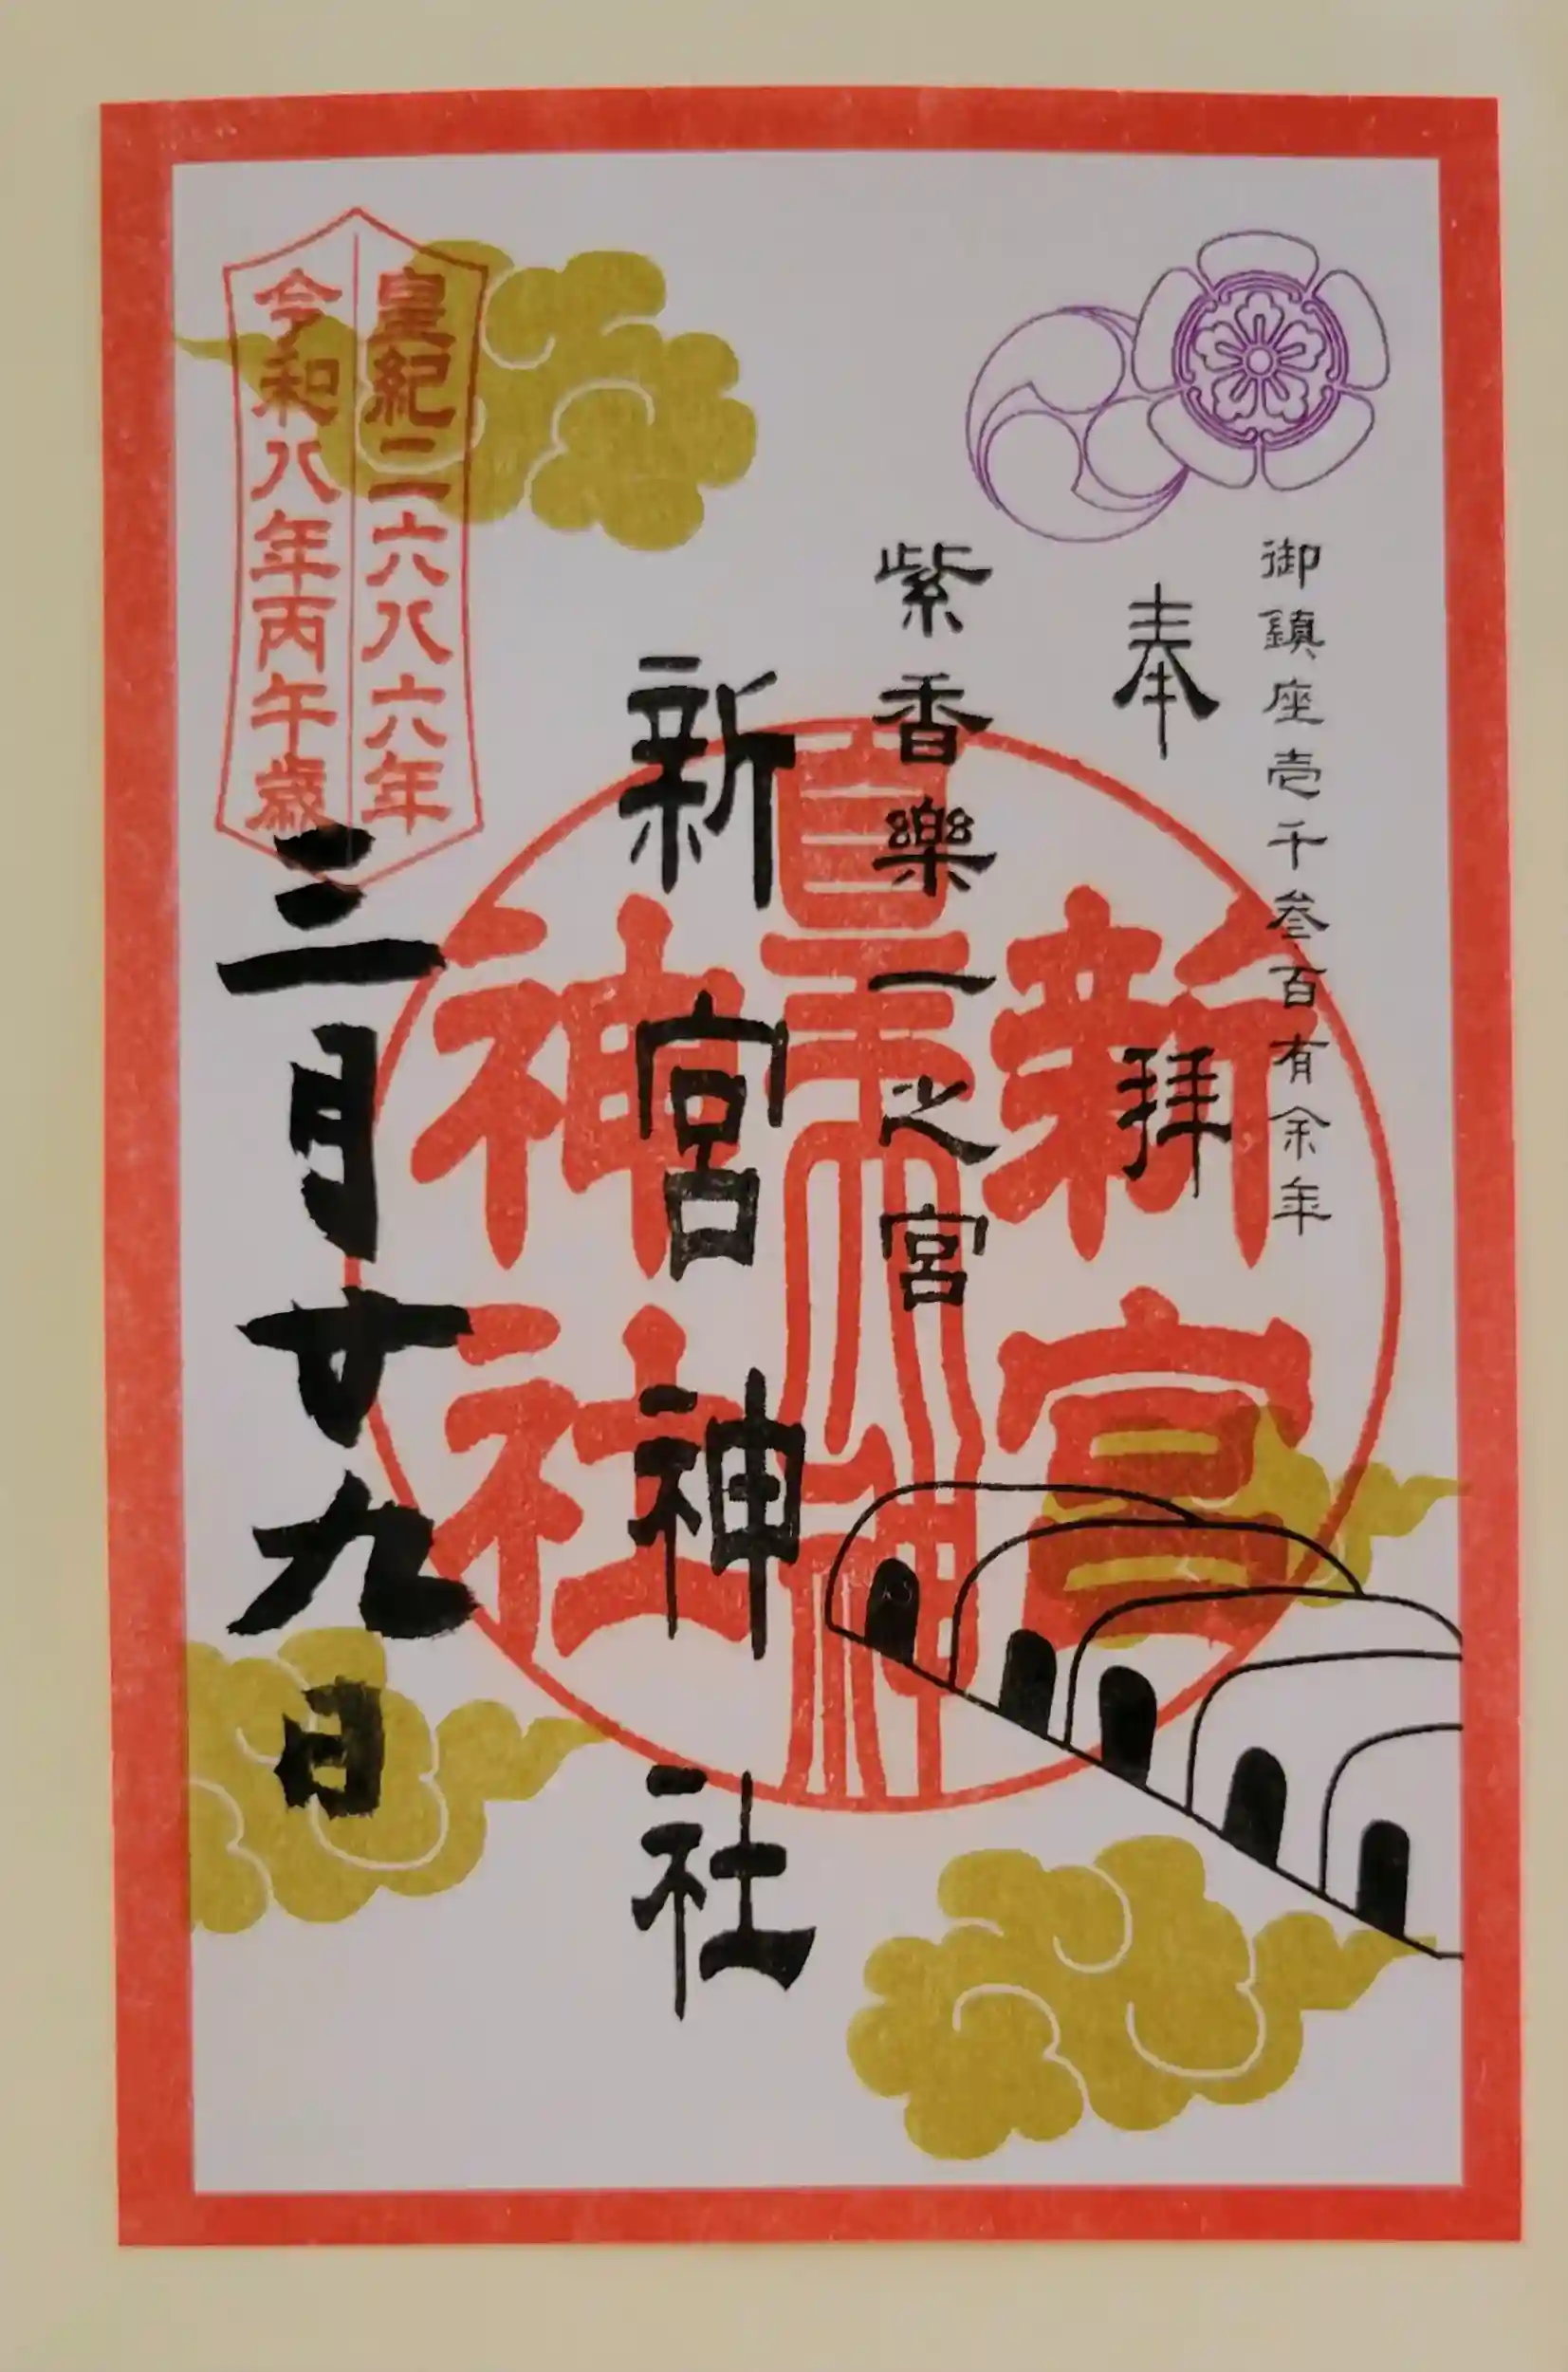 御鎮座壱千叁百有余年
奉拝
紫香樂一之宮
新宮神社
新宮
皇大神
神社
皇紀二六八六年
令和八年丙午歳
三月廿九日